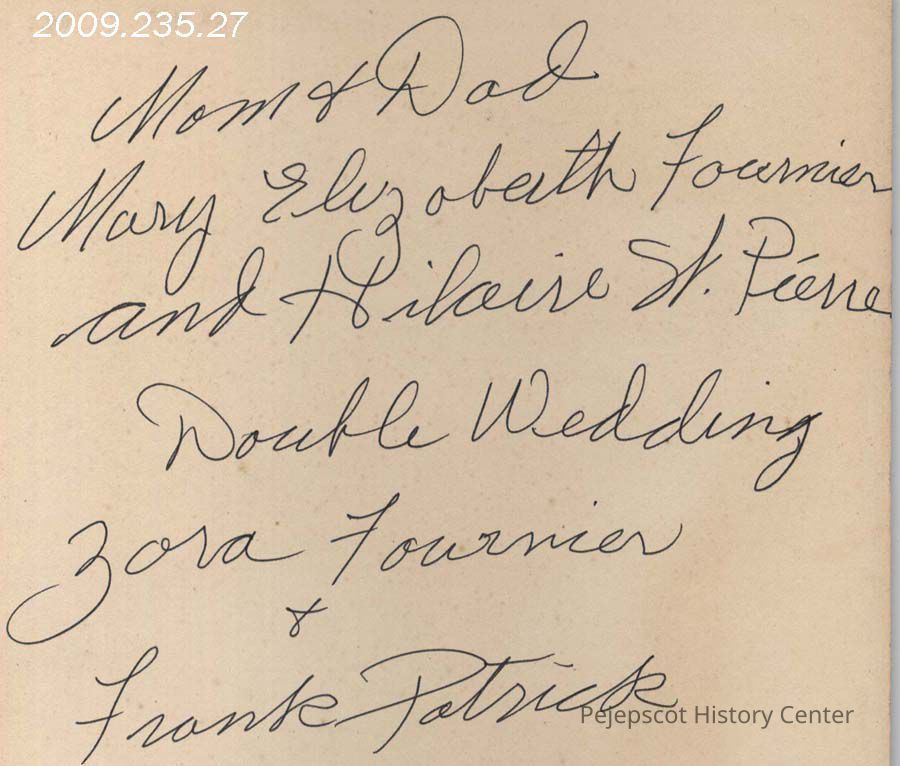 2009.235.27
Mom & Dad
Mary Elizabeth Fournier
and Hilaire St. Pierre
Double Wedding
Zora Fournier
&
Frank Patrick
Pejepscot History Center